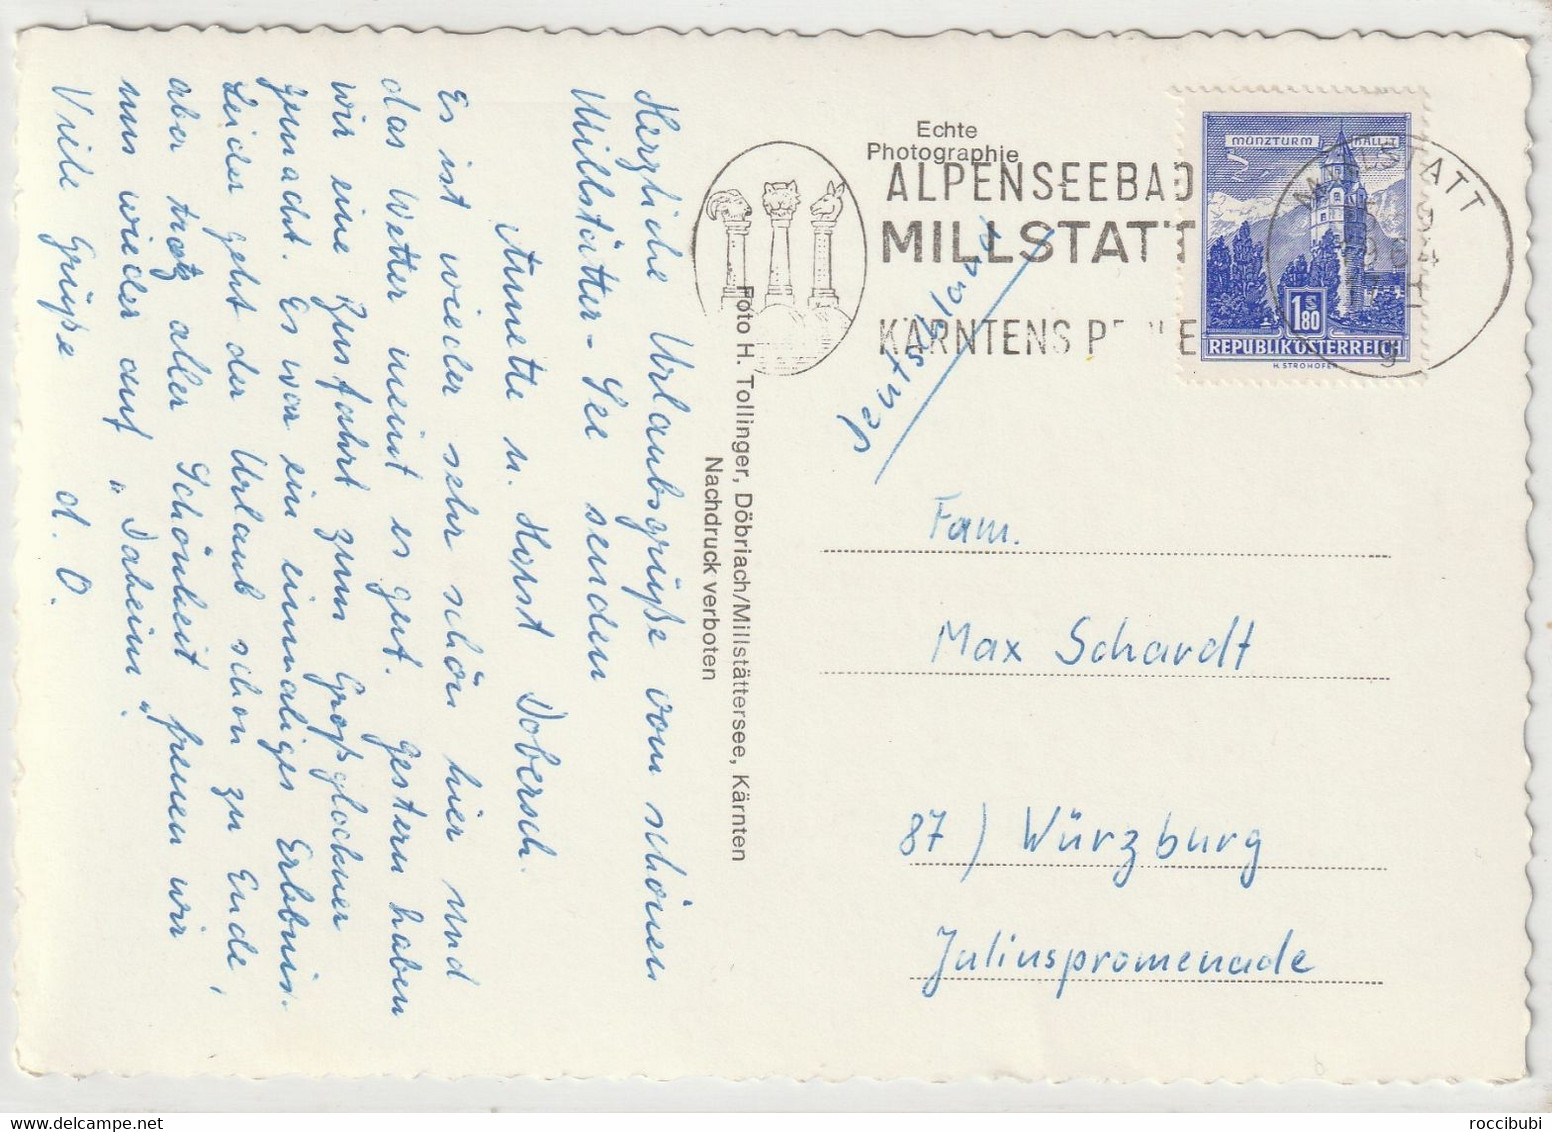 Herzliche Urlaubsgrüße vom schönen
Millstätter-See senden
Annette u. Horst Dobersch.
Es ist wieder sehr schön hier und
das Wetter meint es gut. Gestern haben
wir eine Zusfahrt zum Großglockner
gemacht. Es war ein einmaliges Erlebnis.
Leider geht der Urlaub schon zu Ende,
aber trotz aller Schönheit freuen wir
uns wieder auf "Daheim".
Viele Grüße d. O.
Foto H. Tollinger, Döbriach/Millstättersee, Kärnten
Nachdruck verboten
Echte
Photographie
ALPENSEEBAD
MILLSTATT
KÄRNTENS
MÜNZTURM HALL i.T.
1 S 80
REPUBLIK ÖSTERREICH
H. STROHOFER
MILLSTATT
Deutschland
Fam.
Max Schardt
87) Würzburg
Juliuspromenade
roccibubi